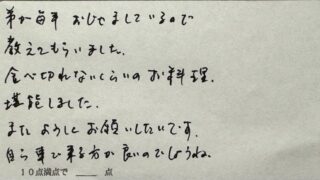 弟が毎年 おじゃましているので
教えてもらいました.
食べ切れないくらいの お料理.
堪能しました.
また よろしく お願いしたいです.
自ら車で来る方が良いのでしょうね.
10点満点で ____ 点